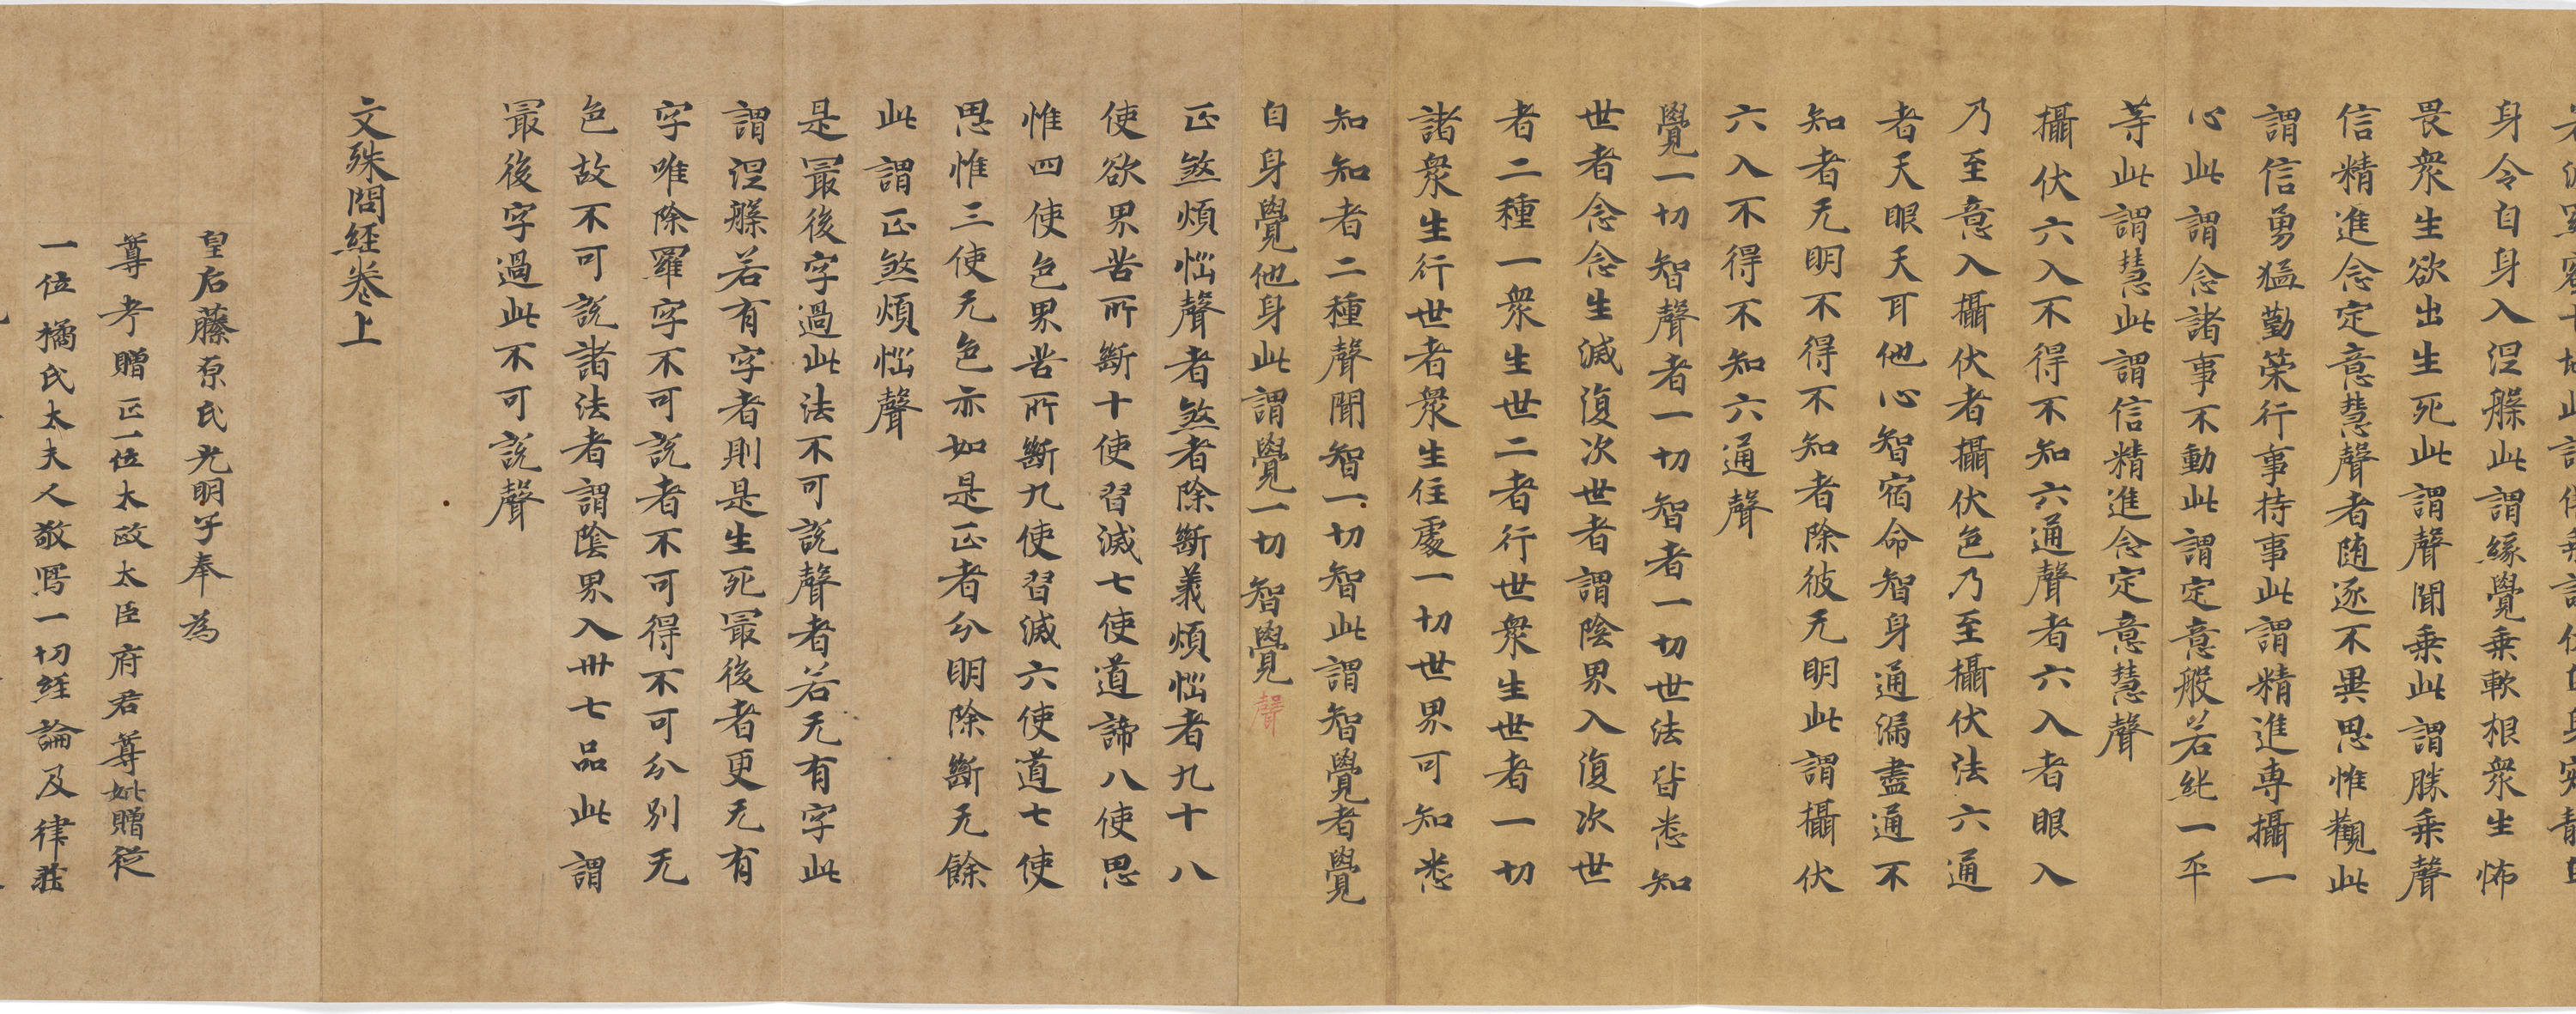 身令自身入涅槃此謂緣覺乗軟根衆生怖
畏衆生欲出生死此謂聲聞乗此謂勝乗聲
信精進念定意慧聲者随逐不異思惟觀此
謂信勇猛勤策行事持事此謂精進專攝一
心此謂念諸事不動此謂定意般若純一平
等此謂慧此謂信精進念定意慧聲
攝伏六入不得不知六通聲者六入者眼入
乃至意入攝伏者攝伏色乃至攝伏法六通
者天眼天耳他心智宿命智身通漏盡通不
知者无明不得不知者除彼无明此謂攝伏
六入不得不知六通聲
覺一切智聲者一切智者一切世法皆悉知
世者念念生滅復次世者謂陰界入復次世
者二種一衆生世二者行世衆生世者一切
諸衆生行世者衆生住處一切世界可知悉
知知者二種聲聞智一切智此謂智覺者覺
自身覺他身此謂覺一切智覺聲
正煞煩惱聲者煞者除斷義煩惱者九十八
使欲界苦所斷十使習滅七使道諦八使思
惟四使色界苦所斷九使習滅六使道七使
思惟三使无色亦如是正者分明除斷无餘
此謂正煞煩惱聲
是冣後字過此法不可說聲者若无有字此
謂涅槃若有字者則是生死冣後者更无有
字唯除羅字不可說者不可得不可分別无
色故不可說諸法者謂陰界入卌七品此謂
冣後字過此不可說聲
文殊問經卷上
皇后藤原氏光明子奉為
尊考贈正一位太政太臣府君尊妣贈從
一位橘氏太夫人敬寫一切經論及律莊